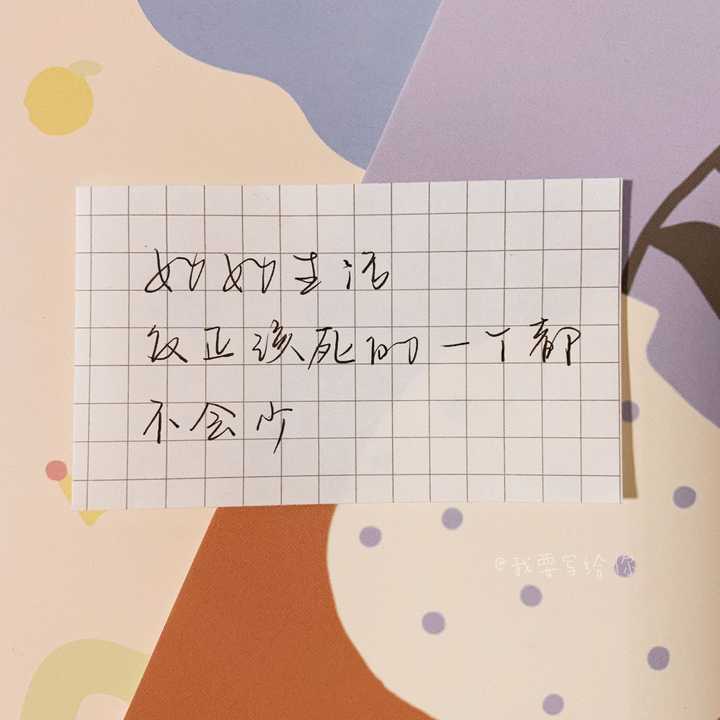 好好生活
反正该死的一个都
不会少
@我要写给你